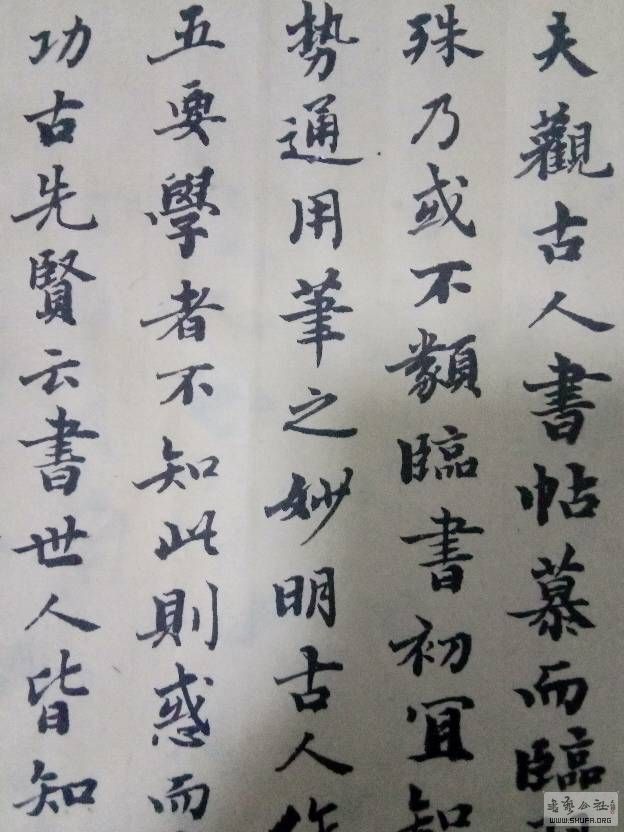 夫觀古人書帖慕而臨
殊乃或不類臨書初宜知
勢通用筆之妙明古人作
五要學者不知此則惑而
功古先賢云書世人皆知
WWW.SHUFA.ORG